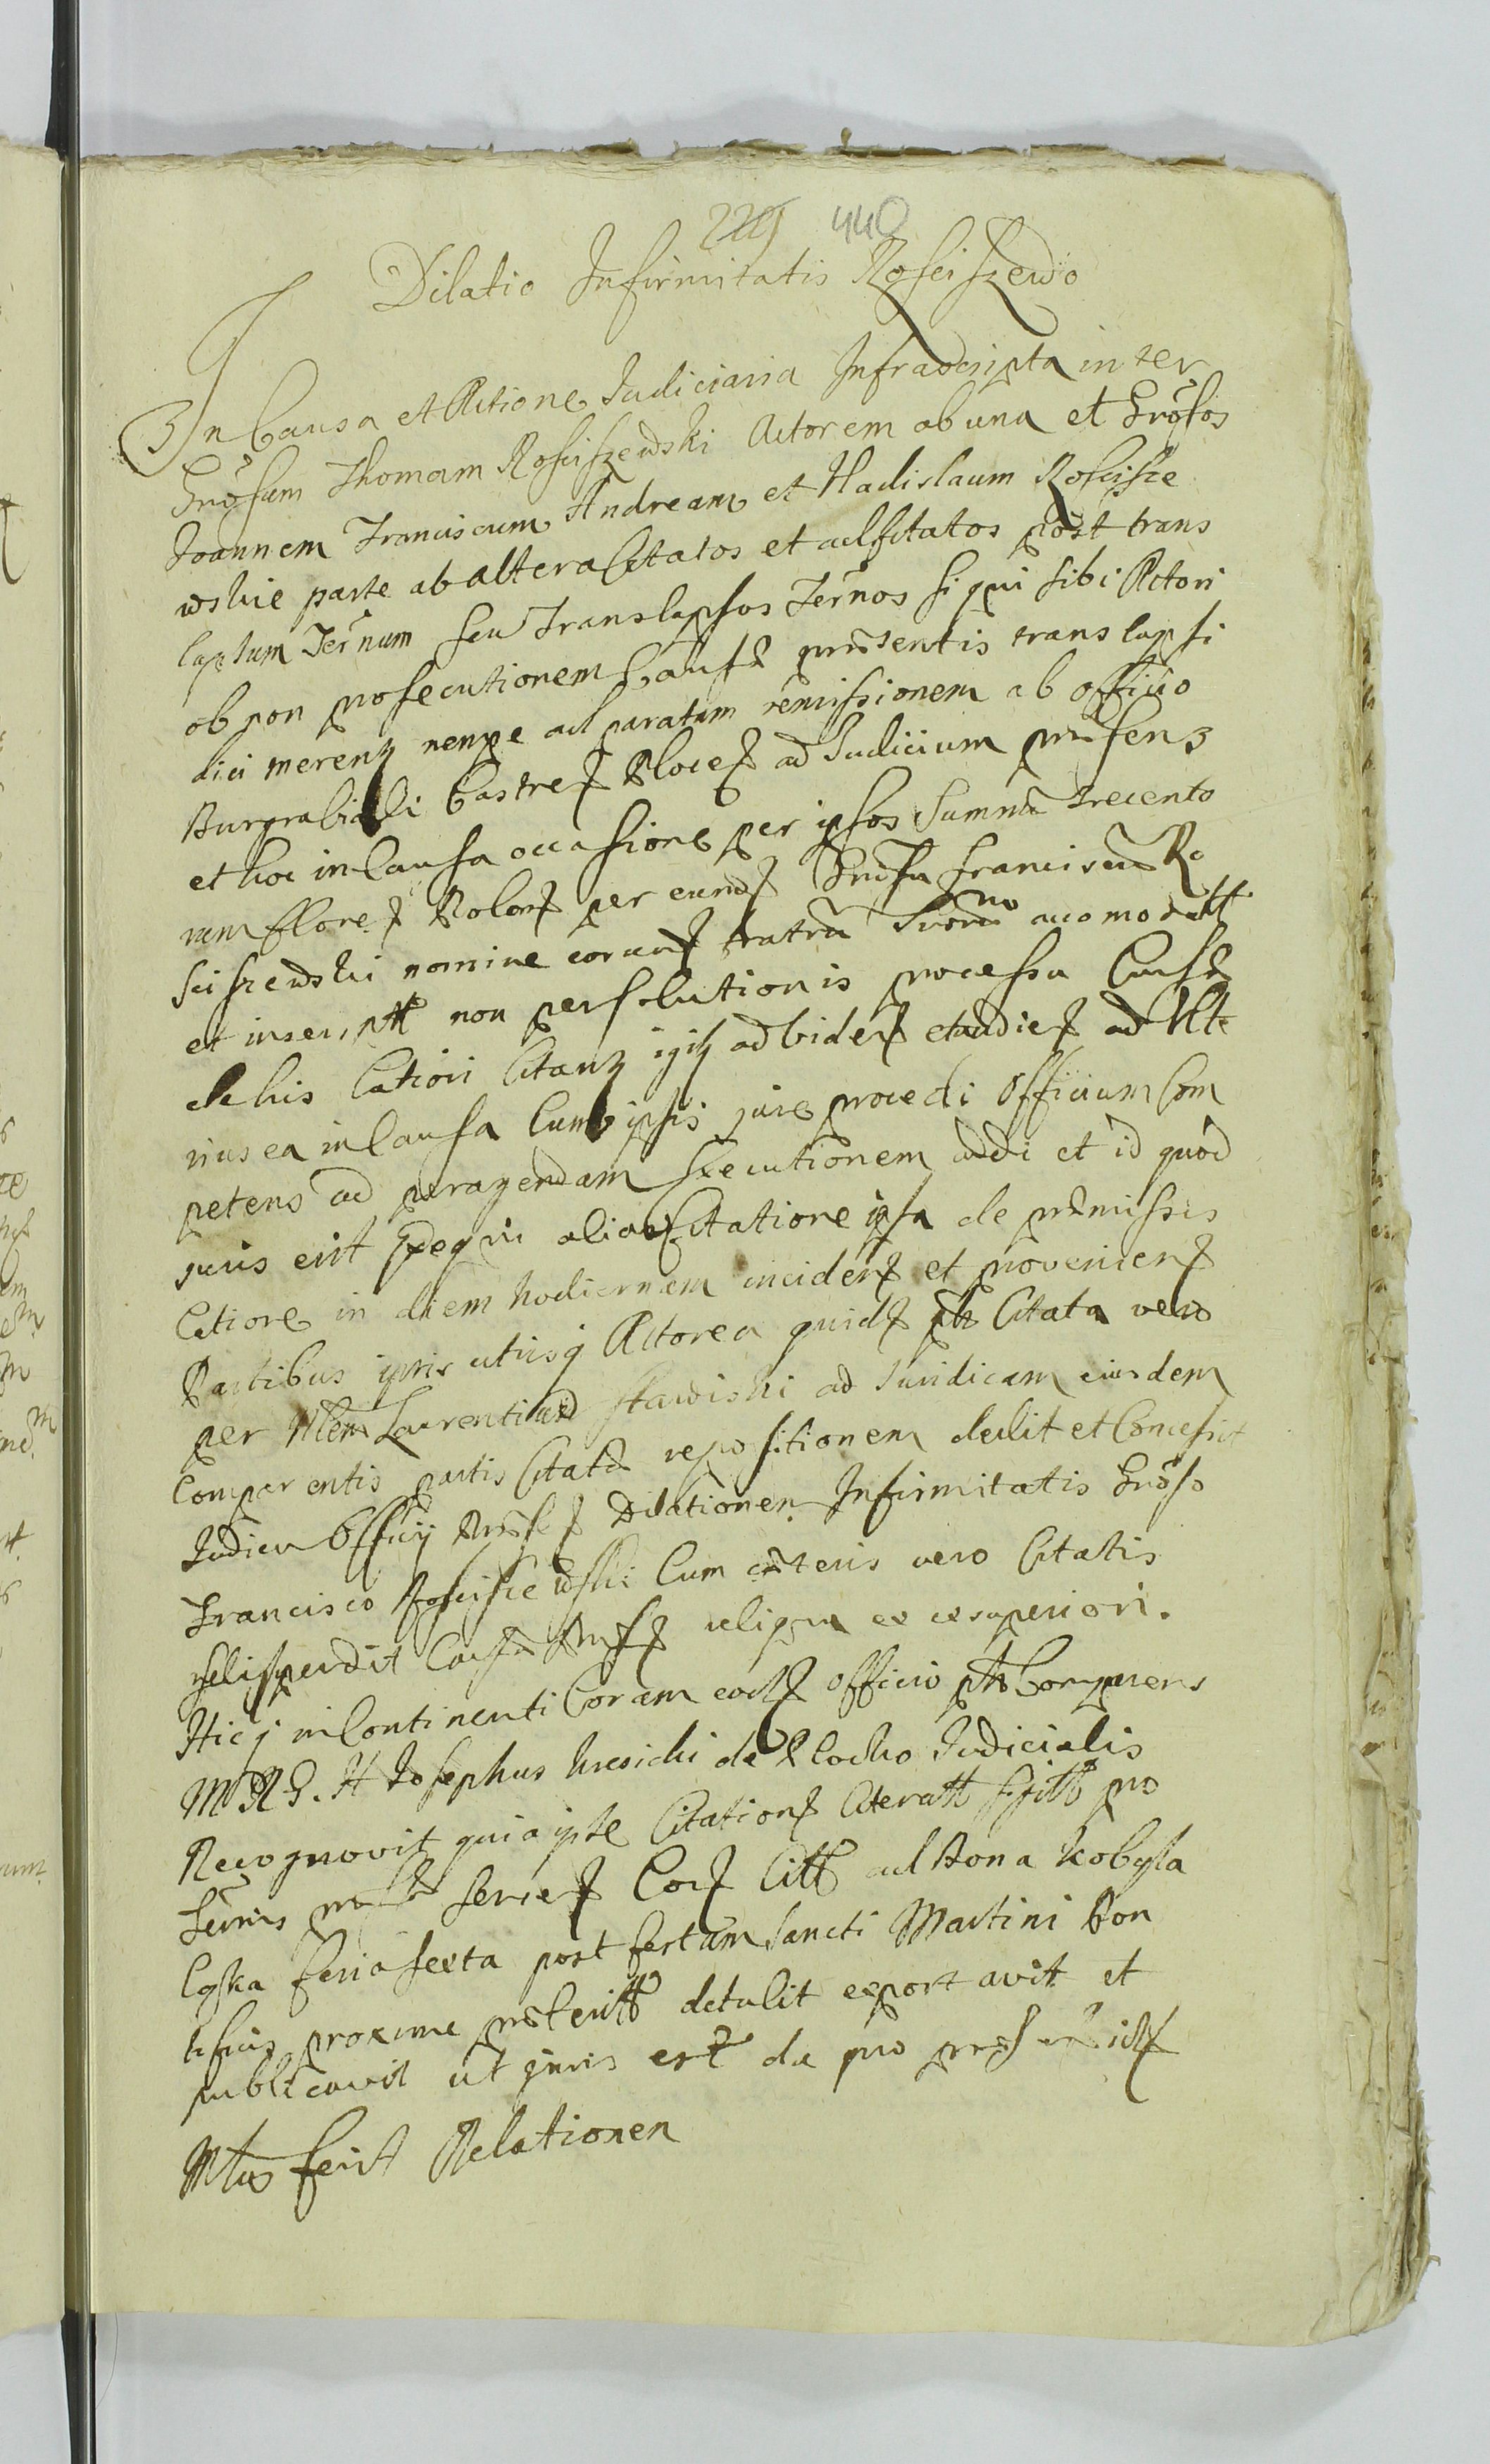 229 440
Dilatio Infirmitatis Rosciszewo
In Causa et Actione Judiciaria Infrascripta inter
Grosum Thomam Rosciszewski Actorem ab una et Grosos
Joannem Franciscum Andream et Vladislaum Roscisze
wskie parte ab altera Citatos et adcitatos post trans
lapsum Ternum seu Translapsos Ternos si qui sibi Actori
ob non prosecutionem Causæ præsentis translapsi
dici merent nempe ad paratam remissionem ab officio
Burgrabiali Castren Plocen ad Judicium præsens
et hoc in Causa occasione per ipsos Summæ Trecento
rum floren Polon per eund Grosu Franciscu Ro
sciszewski nomine eorund fratru suoru no acomodatt
et inscriptt non persolutionis processu Causæ
de his latiori Citant igit ad viden et audien ad Ulte
rius ea in Causa Cum ipsis jure procedi Officium Com
petens ad peragendam Executionem addi et id quod
juris erit Citatione ipsa de præmissis
latiore in diem hodiernam inciden et provenien
Partibus ipsis utrisq Actorea quid pts Citata vero
per Mem Laurentium Slawiski ad Juridicam eiusdem
Comparentis partis Citatæ repositionem dedit et Concessit
Judicu Officii Præsen Dilationem Infirmitatis Groso
Francisco Rosciszewski Cum cæteris vero Citatis
suspendit Causæ Præsen reliqua ex ex superiori.
Hicq in Continenti Coram eod officio pts Comparens
M R G. H Josephus kresicki de Plocko Judicialis
Recognovit quia ipse Citation literatt sigitt pro
Ternis præsen serien Con Citt ad Bona Kobyla
loska feria sexta post festum Sancti Martini Pon
tificis proxime præteritt detulit exportavit et
publicavit ut juris est de pro
Mtus fecit Relationem